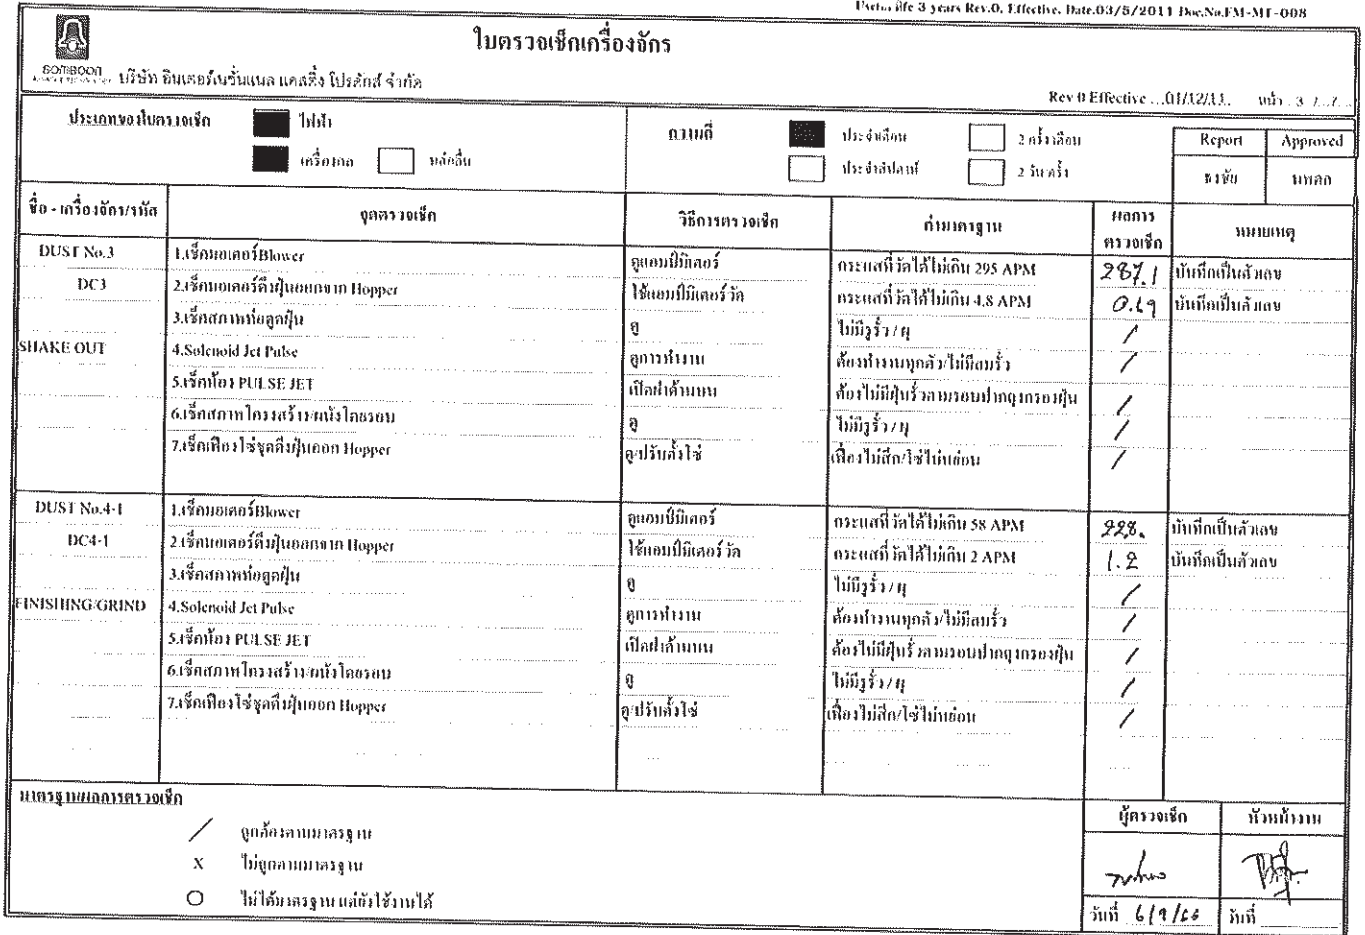 Useful life 3 years Rev.0. Effective. Date.03/5/2011 Doc.No.FM-MT-008
ใบตรวจเช็กเครื่องจักร
SOMBOON
บริษัท อินเตอร์เนชั่นแนล แคสติ้ง โปรดักส์ จำกัด
Rev 0 Effective ...01/12/11.. หน้า . 3 /..7...
ประเภทของใบตรวจเช็ก ไฟฟ้า
เครื่องกล หล่อลื่น
ความถี่ ประจำเดือน 2 ครั้ง/เดือน
ประจำสัปดาห์ 2 วัน/ครั้ง
Report Approved
ธงชัย นพดล
ชื่อ - เครื่องจักร/รหัส จุดตรวจเช็ก วิธีการตรวจเช็ก ค่ามาตรฐาน ผลการตรวจเช็ก หมายเหตุ
DUST No.3 1.เช็คมอเตอร์Blower ดูแอมป์มิเตอร์ กระแสที่วัดได้ไม่เกิน 295 APM 287.1 บันทึกเป็นตัวเลข
DC3 2.เช็คมอเตอร์ดึงฝุ่นออกจาก Hopper ใช้แอมป์มิเตอร์วัด กระแสที่วัดได้ไม่เกิน 4.8 APM บันทึกเป็นตัวเลข
3.เช็คสภาพท่อดูดฝุ่น ดู ไม่มีรูรั่ว / ผุ /
SHAKE OUT 4.Solenoid Jet Pulse ดูการทำงาน ต้องทำงานทุกตัว/ไม่มีลมรั่ว /
5.เช็คห้อง PULSE JET เปิดฝาด้านบน ต้องไม่มีฝุ่นรั่วตามรอบปากถุงกรองฝุ่น /
6.เช็คสภาพโครงสร้าง/ผนังโดยรอบ ดู ไม่มีรูรั่ว / ผุ /
7.เช็คเฟืองโซ่ชุดดึงฝุ่นออก Hopper ดู/ปรับตั้งโซ่ เฟืองไม่สึก/โซ่ไม่หย่อน /
DUST No.4-1 1.เช็คมอเตอร์Blower ดูแอมป์มิเตอร์ กระแสที่วัดได้ไม่เกิน 58 APM 228. บันทึกเป็นตัวเลข
DC4-1 2.เช็คมอเตอร์ดึงฝุ่นออกจาก Hopper ใช้แอมป์มิเตอร์วัด กระแสที่วัดได้ไม่เกิน 2 APM 1.2 บันทึกเป็นตัวเลข
3.เช็คสภาพท่อดูดฝุ่น ดู ไม่มีรูรั่ว / ผุ /
FINISHING/GRIND 4.Solenoid Jet Pulse ดูการทำงาน ต้องทำงานทุกตัว/ไม่มีลมรั่ว /
5.เช็คห้อง PULSE JET เปิดฝาด้านบน ต้องไม่มีฝุ่นรั่วตามรอบปากถุงกรองฝุ่น /
6.เช็คสภาพโครงสร้าง/ผนังโดยรอบ ดู ไม่มีรูรั่ว / ผุ /
7.เช็คเฟืองโซ่ชุดดึงฝุ่นออก Hopper ดู/ปรับตั้งโซ่ เฟืองไม่สึก/โซ่ไม่หย่อน /
มาตรฐานผลการตรวจเช็ก
/ ถูกต้องตามมาตรฐาน
X ไม่ถูกตามมาตรฐาน
O ไม่ได้มาตรฐาน แต่ยังใช้งานได้
ผู้ตรวจเช็ก หัวหน้างาน
วันที่ 6/9/66 วันที่